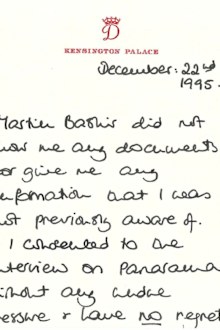 D
KENSINGTON PALACE
December: 22nd
1995.
Martin Bashir did not
how me any documents
or give me any
nformation that I was
ot previously aware of.
I consented to the
interview on Panorama
ithout any undue
ressure & have no regret